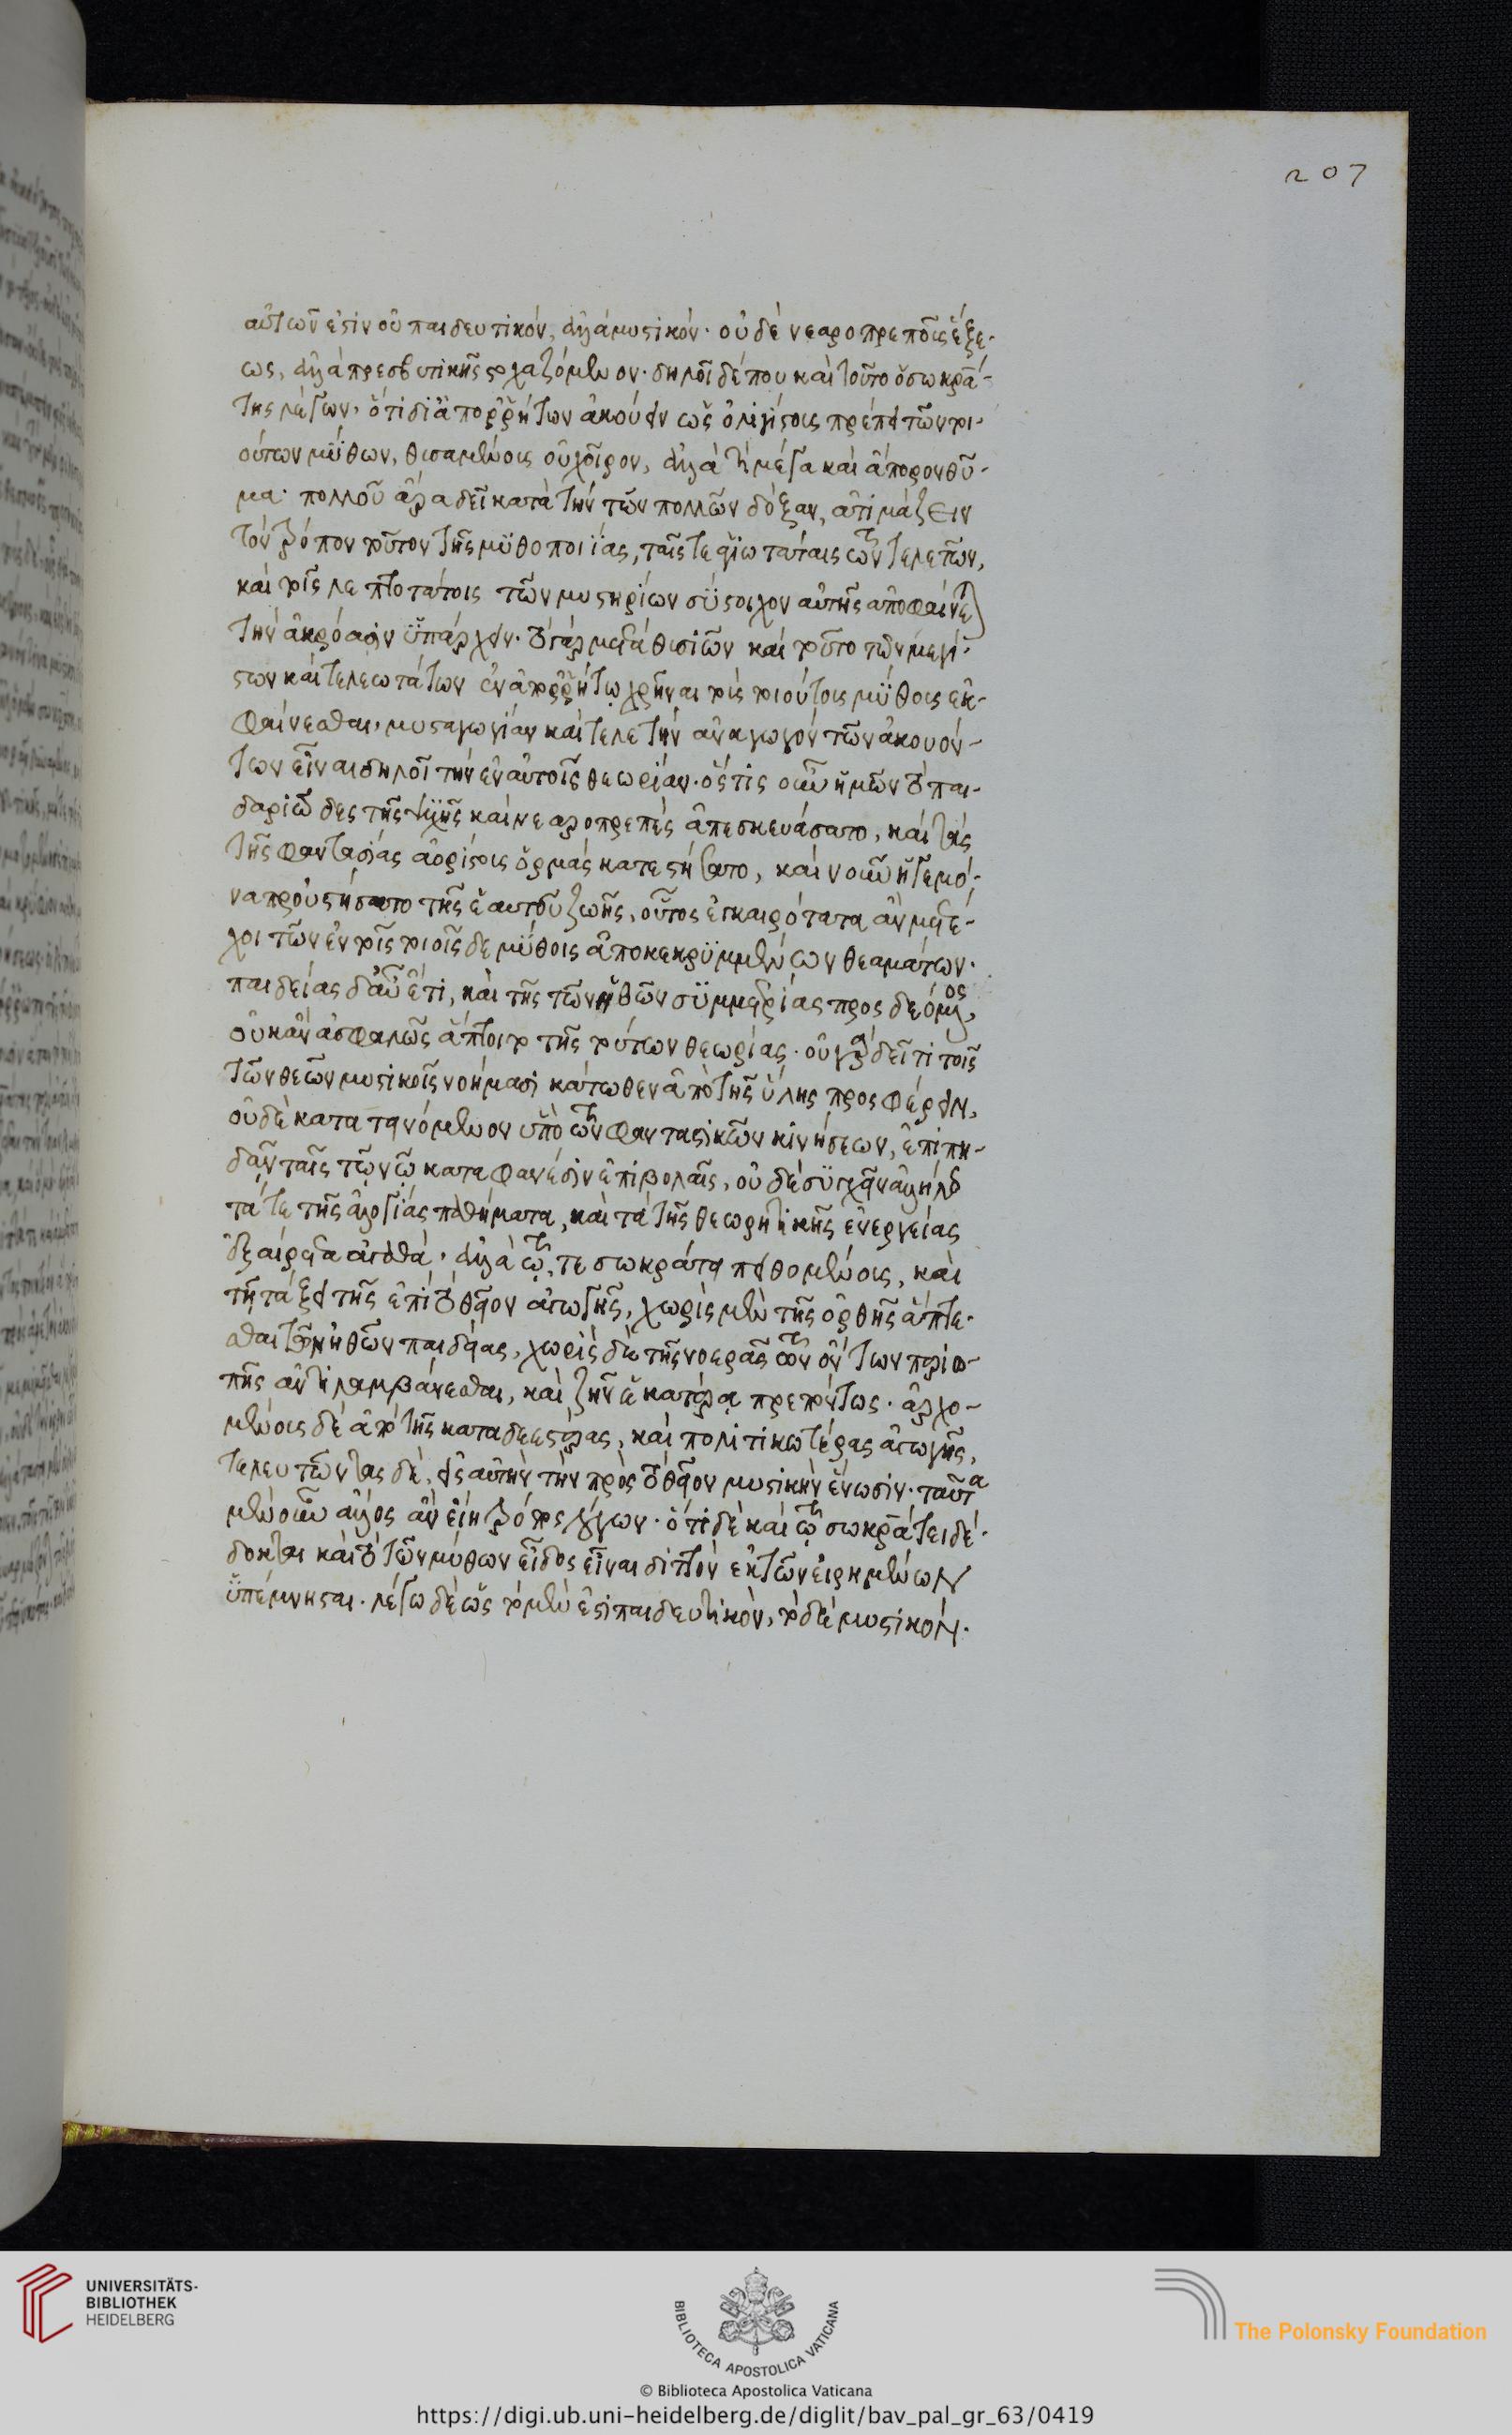 207
αὐτῶν ἐστὶν οὐ παιδευτικόν, ἀλλὰ μυστικόν· οὐδὲ νεαροπρεποῦς ἕξε-
ως, ἀλλὰ πρεσβυτικῆς στοχαζόμενον. δηλοῖ δέ που καὶ τοῦτο ὁ σωκρά-
της λέγων, ὅτι δι' ἀπορρήτων ἀκούειν ὡς ὀλιγίστοις πρέπει τῶν τοι-
ούτων μύθων, θυσαμένοις οὐ χοῖρον, ἀλλά τι μέγα καὶ ἄπορον θῦ-
μα· πολλοῦ ἄρα δεῖ κατὰ τὴν τῶν πολλῶν δόξαν, ἀτιμάζειν
τὸν τρόπον τοῦτον τῆς μυθοποιίας, ταῖς τε ἁγιωτάταις τῶν τελετῶν,
καὶ τοῖς λεπτοτάτοις τῶν μυστηρίων σύστοιχον αὐτῆς ἀποφαίνεται
τὴν ἀκρόασιν ὑπάρχειν. τὸ γὰρ μετὰ θυσιῶν καὶ τοῦτο τῶν μεγί-
στων καὶ τελεωτάτων ἐν ἀπορρήτῳ χρῆναι τοῖς τοιούτοις μύθοις ἐκ-
φαίνεσθαι, μυσταγωγίαν καὶ τελετὴν ἀναγωγὸν τῶν ἀκουόν-
των εἶναι δηλοῖ τὴν ἐν αὐτοῖς θεωρίαν. ὅστις οὖν ἡμῶν τὸ παι-
δαριῶδες τῆς ψυχῆς καὶ νεαροπρεπὲς ἀπεσκευάσατο, καὶ τὰς
τῆς φαντασίας ἀορίστοις ὁρμὰς κατεστήσατο, καὶ νοῦν ἡγεμό-
να προὐστήσατο τῆς ἑαυτοῦ ζωῆς, οὗτος ἐγκαιρότατα ἂν μετέ-
χοι τῶν ἐν τοῖς τοιοῖσδε μύθοις ἀποκεκρυμμένων θεαμάτων.
παιδείας δ' αὖ ἔτι, καὶ τῆς τῶν ἠθῶν συμμετρίας προσδεόμενος,
οὐκ ἂν ἀσφαλῶς ἅπτοιτο τῆς τούτων θεωρίας. οὐ γὰρ δεῖ τι τοῖς
τῶν θεῶν μυστικοῖς νοήμασι κάτωθεν ἀπὸ τῆς ὕλης προσφέρειν,
οὐδὲ κατατεινόμενον ὑπὸ τῶν φανταστικῶν κινήσεων, ἐπιπη-
δᾶν ταῖς τῶν νῷ καταφανέσιν ἐπιβολαῖς, οὐδὲ συγχεῖν ἀλλήλοις
τά τε τῆς ἀλογίας παθήματα, καὶ τὰ τῆς θεωρητικῆς ἐνεργείας
ἐξαίρετα ἀγαθά. ἀλλὰ τῷ τε σωκράτει πειθομένοις, καὶ
τῇ τάξει τῆς ἐπὶ τὸ θεῖον ἀγωγῆς, χωρὶς μὲν τῆς ὀρθῆς ἅπτε-
σθαι τῶν ἠθῶν παιδείας, χωρὶς δὲ τῆς νοερᾶς τῶν ὄντων περιω-
πῆς ἀντιλαμβάνεσθαι, καὶ ζῆν ἑκατέρᾳ πρεπόντως. ἀρχο-
μένοις δὲ ἀπὸ τῆς καταδεεστέρας, καὶ πολιτικωτέρας ἀγωγῆς,
τελευτῶντας δὲ, εἰς αὐτὴν τὴν πρὸς τὸ θεῖον μυστικὴν ἕνωσιν. ταῦτα
μὲν οὖν ἄλλος ἂν εἴη τρόπος λόγων. ὅτι δὲ καὶ τῷ σωκράτει δέ-
δοκται καὶ τὸ τῶν μύθων εἶδος εἶναι διττὸν ἐκ τῶν εἰρημένων
ὑπέμνησται. λέγω δὲ ὡς τὸ μὲν ἐστὶ παιδευτικὸν, τὸ δὲ μυστικόν.
UNIVERSITÄTS-
BIBLIOTHEK
HEIDELBERG
BIBLIOTECA APOSTOLICA VATICANA
The Polonsky Foundation
© Biblioteca Apostolica Vaticana
https://digi.ub.uni-heidelberg.de/diglit/bav_pal_gr_63/0419